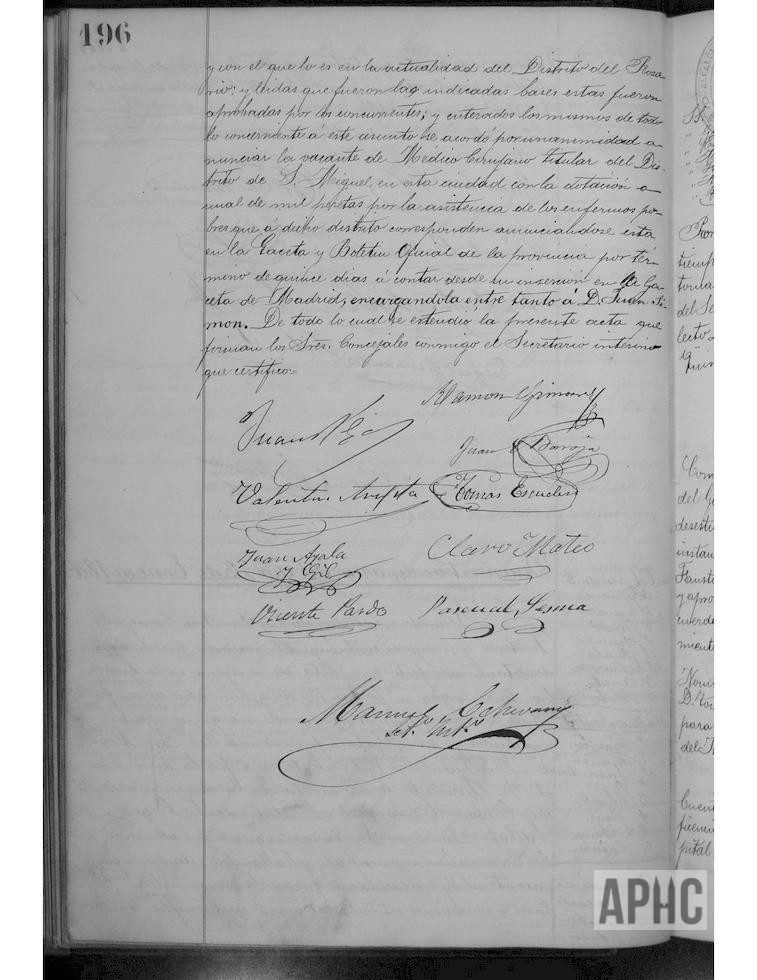 196
y con el que lo es en la actualidad del Distrito del Rosa-
rio; y leidas que fueron las indicadas bases estas fueron
aprobadas por los concurrentes; y enterados los mismos de todo
lo concerniente á este asunto se acordó por unanimidad a-
nunciar la vacante de Médico Cirujano titular del Dis-
trito de S. Miguel en esta ciudad con la dotación a-
nual de mil pesetas por la asistencia de los enfermos po-
bres que á dicho distrito corresponden anunciandose esta
en la Gaceta y Boletin Oficial de la provincia por tér-
mino de quince dias á contar desde su inserción en la Ga-
ceta de Madrid, encargandola entre tanto á D. Juan Si-
mon. De todo lo cual se extendió la presente acta que
firman los Sres. Concejales conmigo el Secretario interino
que certifico=
Ramon Gimenez
Juan
Juan Baroja
Valentin
Tomas Escudero
Juan Ayala
y Gil
Claro Mateo
Vicente Pardo
Pascual Sesma
Manuel
Srio. Int.º
del Se
del G
instan
Fausto
y apro
miento
para
pital
APHC